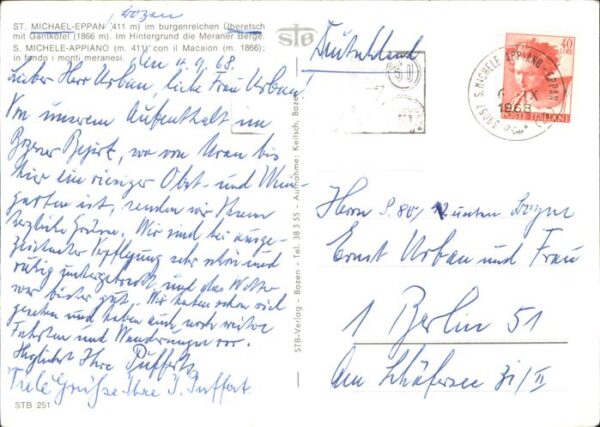 Bozen
ST. MICHAEL-EPPAN (411 m) im burgenreichen Überetsch
mit Gantkofel (1866 m). Im Hintergrund die Meraner Berge.
S. MICHELE-APPIANO (m. 411) con il Macaion (m. 1866);
in fondo i monti meranesi.
den 4.9.68.
Lieber Herr Urban, liebe Frau Urban!
Von unserem Aufenthalt im
Bozener Bezirk, wo von Meran bis
hier ein riesiger Obst- und Wein-
garten ist, senden wir Ihnen
herzliche Grüsse. Wir sind bei ausge-
zeichneter Verpflegung sehr schön und
ruhig untergebracht und das Wetter
war bisher gut. Wir haben schon viel
gesehen und haben auch noch weitere
Fahrten und Wanderungen vor.
Herzlichst Ihre Pufferts
Viele Grüße Ihre J. Puffert.
STB 251
STB-Verlag - Bozen - Tel. 38 3 55 - Aufnahme: Keitsch, Bozen
stb
Deutschland
50
39057 S. MICHELE APPIANO EPPAN
IX
1968
40
LIRE
POSTE ITALIANE
Herrn
unten
Ernst Urban und Frau
1 Berlin 51
Am Schäfersee 31/II